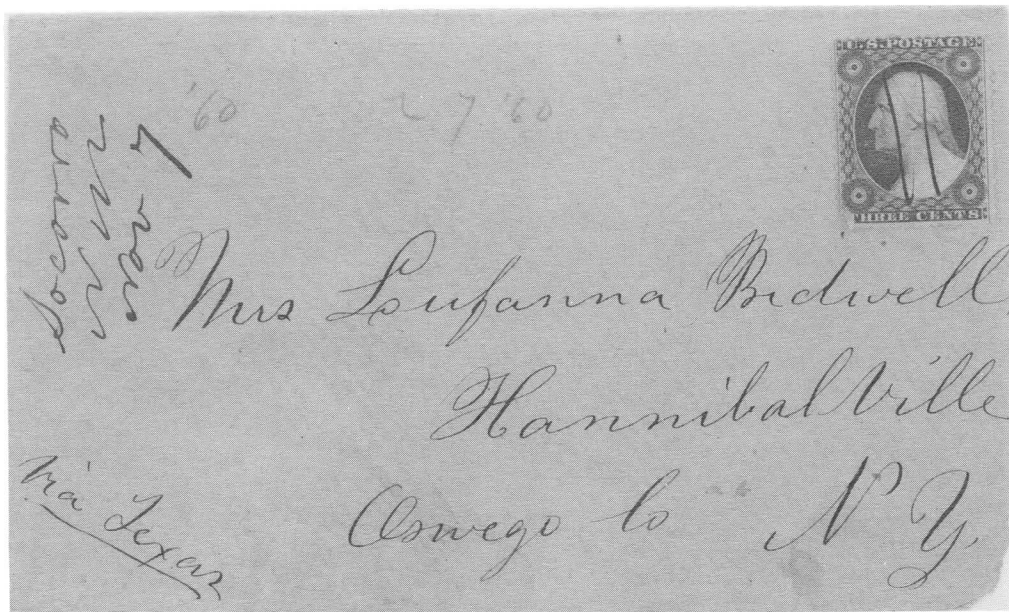 U.S. POSTAGE
THREE CENTS
'60
27 '60
Mrs Lufanna Bidwell,
HannibalVille
Oswego Co N Y.
Via Texas